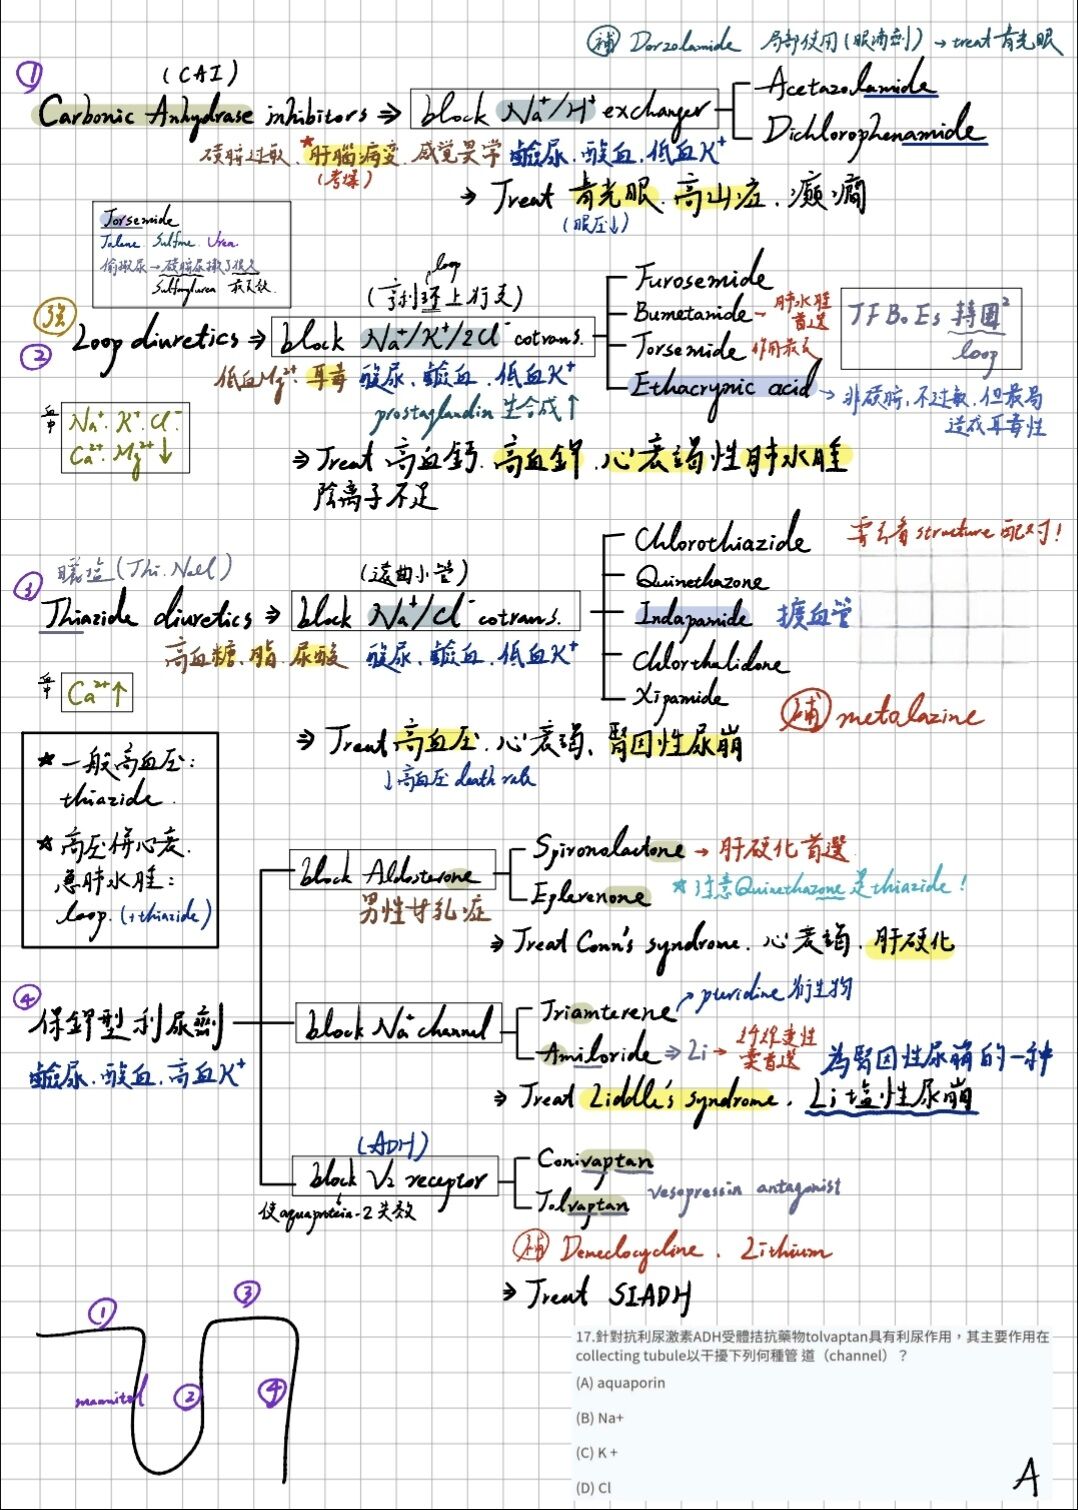 補 Dorzolamide 局部使用(眼滴劑) → treat 青光眼
①
(CAI)
Carbonic Anhydrase inhibitors ⇒ block Na⁺/H⁺ exchanger
Acetazolamide
Dichlorophenamide
磺胺过敏、*肝腦病变、感觉異常 鹼尿、酸血、低血K⁺
(考爆)
⇒ Treat 青光眼、高山症、癲癇
(眼压↓)
Torsemide
Tolune Sulfone Urea
偷撇尿→磺胺尿撇了很久
Sulfonylurea
強
②
loop
(亨利环上行支)
Loop diuretics ⇒ block Na⁺/K⁺/2Cl⁻ cotrans.
Furosemide
Bumetamide → 肺水腫首選
Torsemide 作用最長
Ethacrynic acid → 非磺胺、不过敏、但最易造成耳毒性
TFBoEs 轉圈²
loop
低血Mg²⁺ 耳毒 酸尿、鹼血、低血K⁺
prostaglandin 生合成↑
血中 Na⁺ K⁺ Cl⁻
Ca²⁺ Mg²⁺ ↓
⇒ Treat 高血鈣、高血鉀、心衰竭性肺水腫
陰离子不足
③
曬塩(Thi. NaCl)
(遠曲小管)
Thiazide diuretics ⇒ block Na⁺/Cl⁻ cotrans.
Chlorothiazide
Quinethazone
Indapamide 擴血管
Chlorthalidone
Xipamide
需去看structure配对!
補 metalazine
高血糖、脂、尿酸 酸尿、鹼血、低血K⁺
血中 Ca²⁺↑
⇒ Treat 高血压、心衰竭、腎因性尿崩
↓高血压 death rate
★一般高血压:
thiazide.
★高压併心衰.
急肺水腫:
loop. (+thiazide)
④
保鉀型利尿劑
鹼尿、酸血、高血K⁺
block Aldosterone
男性女乳症
Spironolactone → 肝硬化首選
Eplerenone *注意Quinethazone是thiazide!
⇒ Treat Conn's syndrome、心衰竭、肝硬化
block Na⁺ channel
Triamterene → pteridine 衍生物
Amiloride ⇒ Li → 纖維囊首選
為腎因性尿崩的一种
⇒ Treat Liddle's syndrome、Li塩性尿崩
(ADH)
block V₂ receptor
使aquaprotein-2失效
Conivaptan
Tolvaptan
vesopressin antagonist
補 Demeclocycline、Lithium
⇒ Treat SIADH
①
③
mannitol
②
④
17.針對抗利尿激素ADH受體拮抗藥物tolvaptan具有利尿作用，其主要作用在
collecting tubule以干擾下列何種管 道（channel）？
(A) aquaporin
(B) Na+
(C) K +
(D) Cl
A